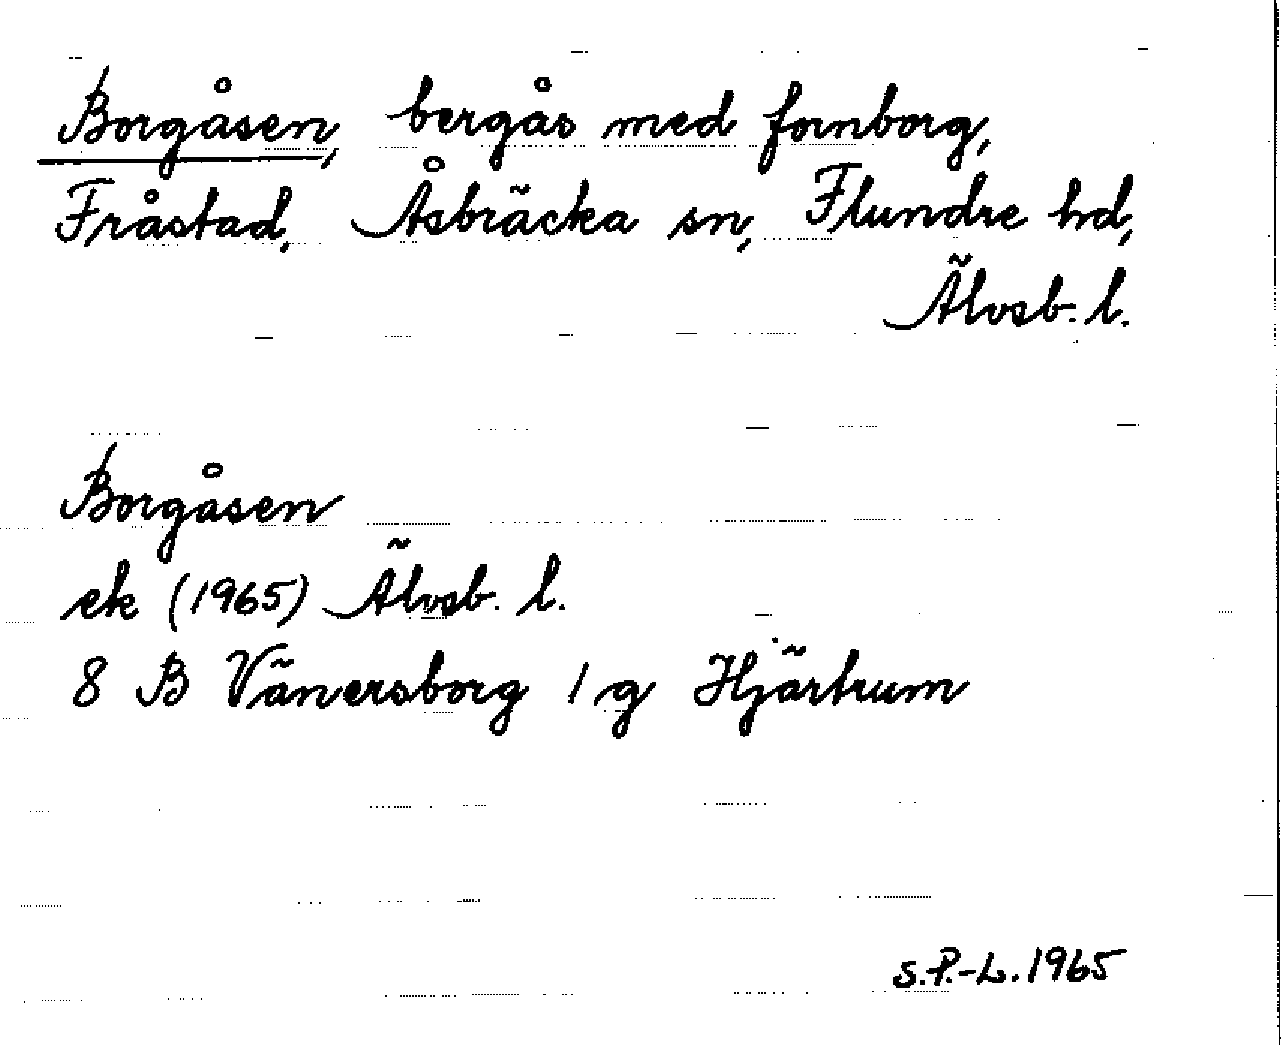 Borgåsen, bergås med fornborg,
Fråstad, Åsbräcka sn, Flundre hd,
Älvsb. l.
Borgåsen
ek (1965) Älvsb. l.
8 B Vänersborg 1 g Hjärtum
S.P.-L. 1965